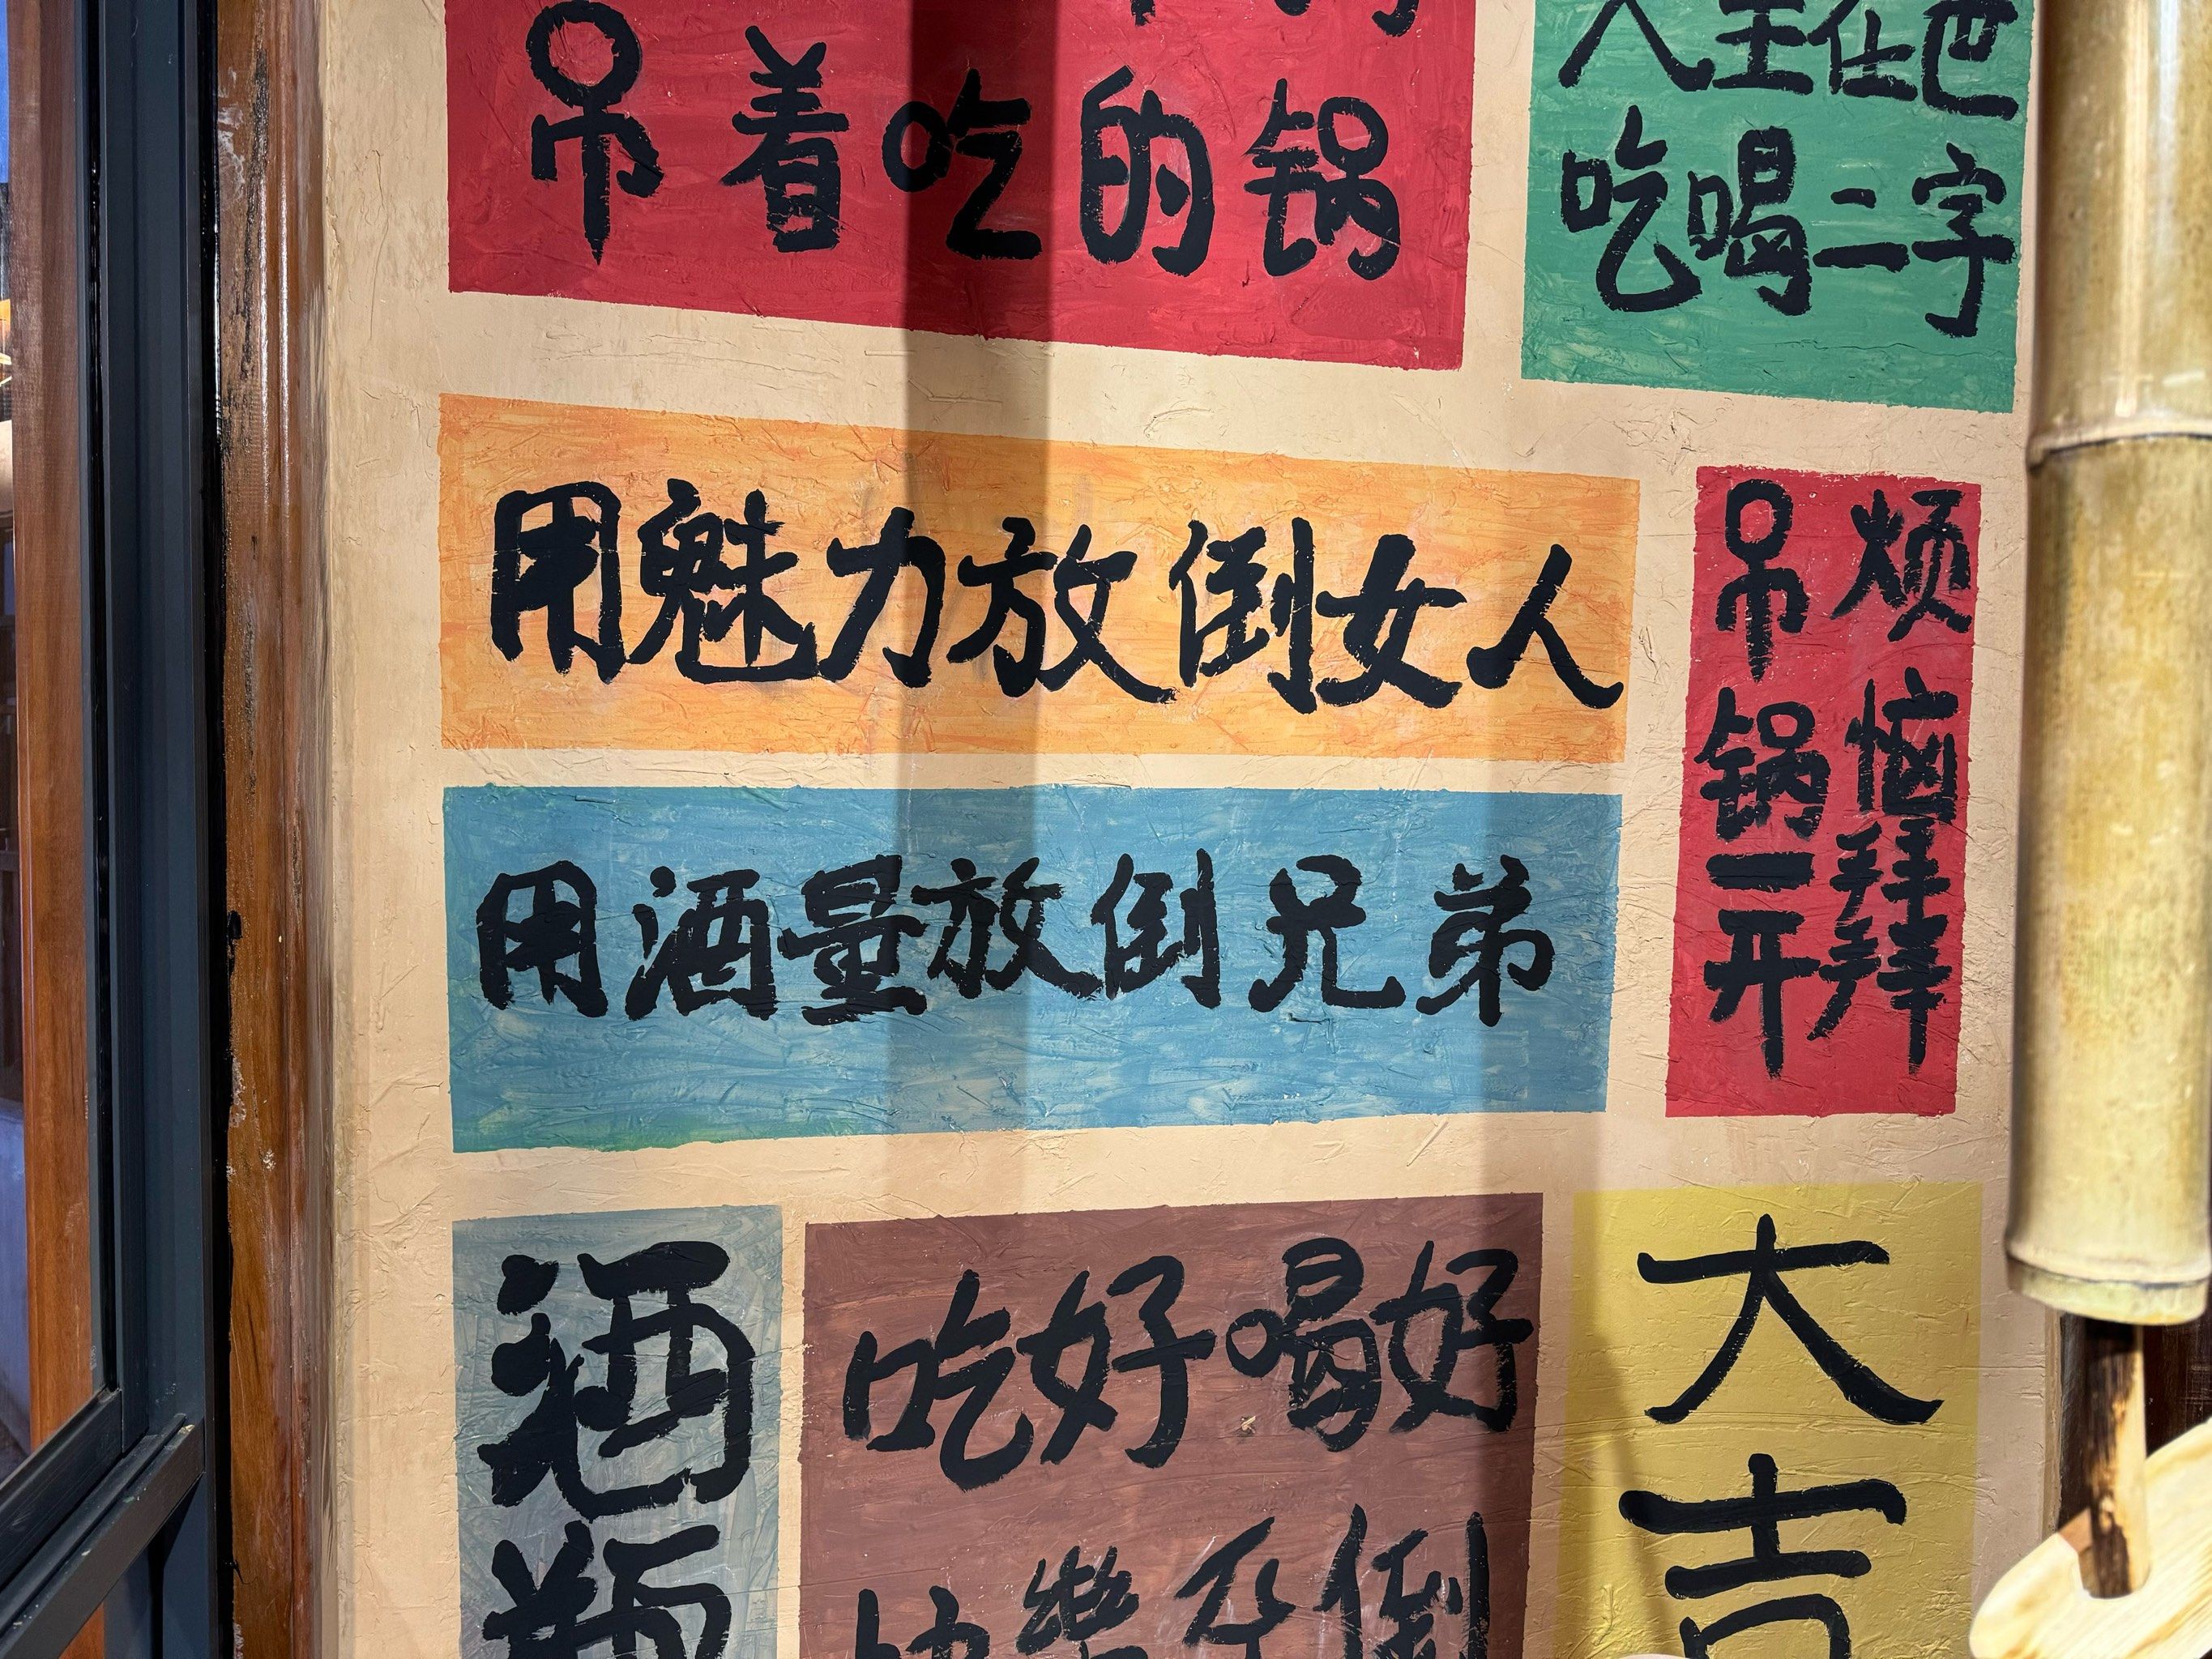 吊着吃的锅
人生在世
吃喝二字
用魅力放倒女人
烦恼拜拜
吊锅一开
用酒量放倒兄弟
酒瓶
吃好喝好
快樂不倒
大吉